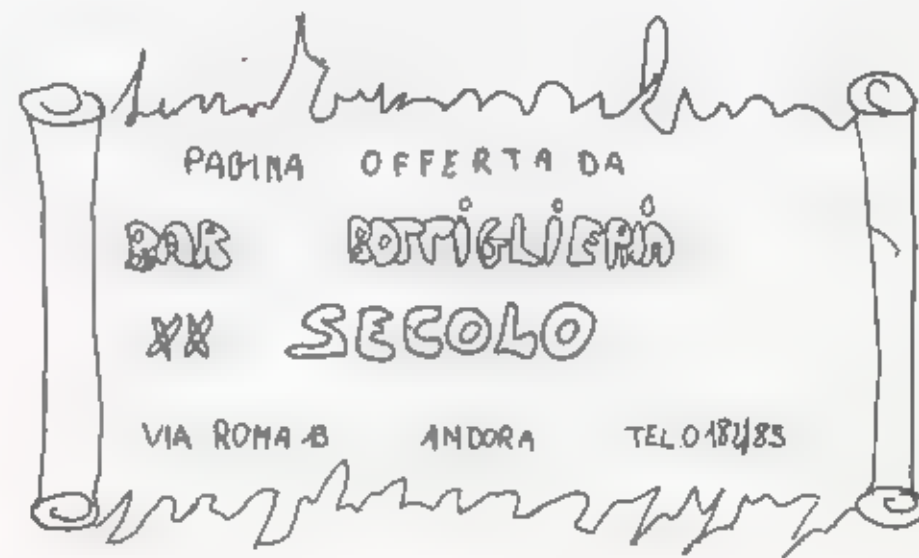 PAGINA OFFERTA DA
BAR BOTTIGLIERIA
XX SECOLO
VIA ROMA 13 ANDORA TEL.